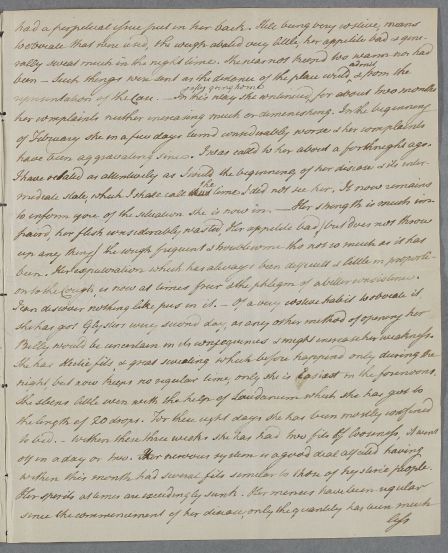 had a perpetual issue put in her back. Still being very costive, means
to obviate that were used, the cough abated very little, her appetite bad & gene-
rally sweat much in the night time. She was not keeped too warm nor had
been — Such things were sent as the distance of the place would admit, & from the
representation of the Case. — In this way she continued, for about two months
easily going home
her complaints neither increasing much or diminishing. In the beginning
of February she in a few days turnd considerably worse & her complaints
have been aggravating since. I was called to her about a forthnight ago.
I have related as attentively as I could the beginning of her disease & its inter-
mediate state, which I shall call the time I did not see her. It now remains
to inform you of the situation she is now in. — Her strength is much im-
paird, her flesh considerably wasted, Her appetite bad (but does not throw
up any thing) the cough frequent & troublesome tho not so much as it has
been. Her expectoration which has always been difficult & little in proporti-
on to the Cough, is now at times freer & the phlegm of a better consistence.
I can discover nothing like pus in it. — Of a very costive habit to obviate it
She has got Glysters every second day, as any other method of opening her
Belly would be uncertain in its consequences & might increase her weakness.
She has Hectic fits, & great sweating which before happend only during the
night but now keeps no regular time, only she is Easiest in the forenoons,
She sleeps little even with the help of Laudanum which she has got to
the length of 20 drops. For these eight days she has been mostly confined
to bed. — Within these three weeks she has had two fits of looseness, it went
off in a day or two. Her nervous system is a good deal affected having
within this month had several fits similar to those of hysteric people.
Her spirits at times are exceedingly sunk. Her menses have been regular
since the commencement of her disease, only the quantity has been much
less